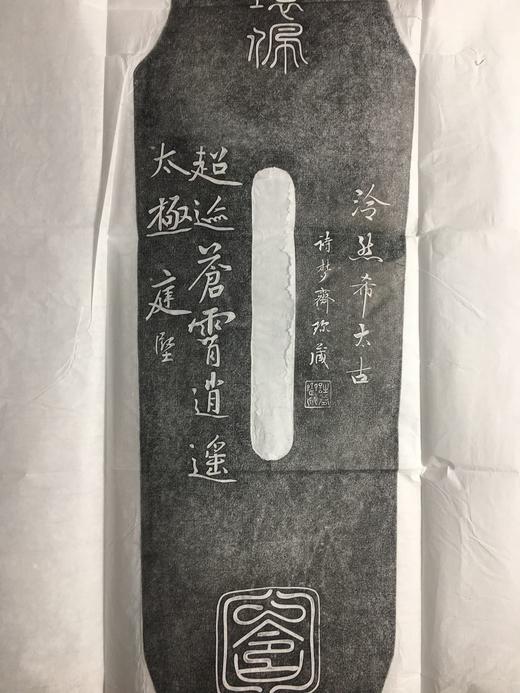 佩
泠然希太古
詩夢齋珎藏
超迹蒼霄逍遙
太極
庭堅